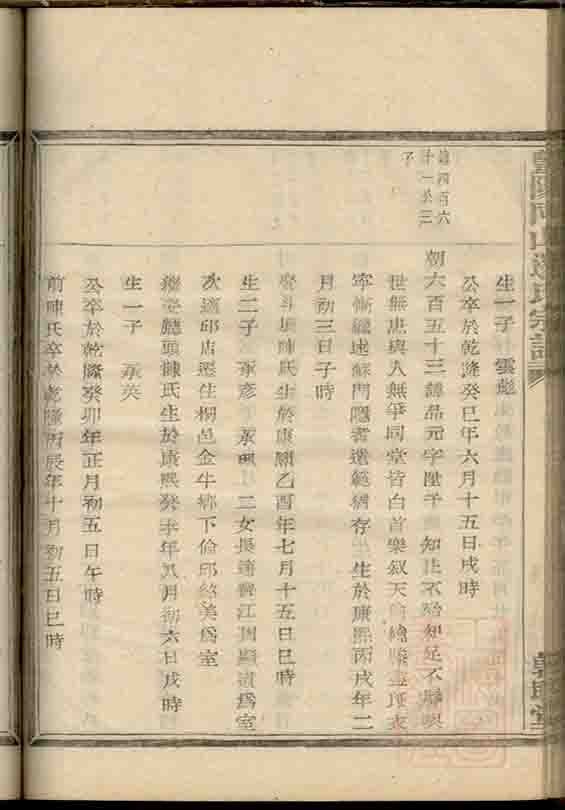 第四百六
十一公三
子
生一子 雲彪
公卒於乾隆癸巳年六月十五日戌時
朝六百五十三 諱品元字陞千 知止不殆知足不辱與
世無患與人無爭同堂皆白首樂叙天
宰 蘇門隱者遺範猶存 生於康熙丙戌年二
月初三日子時
娶 陳氏生於康熙乙酉年七月十五日巳時
生二子 承彥 承 二女長適 江周顯道爲室
次適邱店遷住栩邑金牛鄉下倫邱紹美爲室
續娶 頭陳氏生於康熙癸未年八月初六日戌時
生一子 承英
公卒於乾隆癸卯年正月初五日午時
前陳氏卒於乾隆丙辰年十月初五日巳時
南 氏宗譜
堂